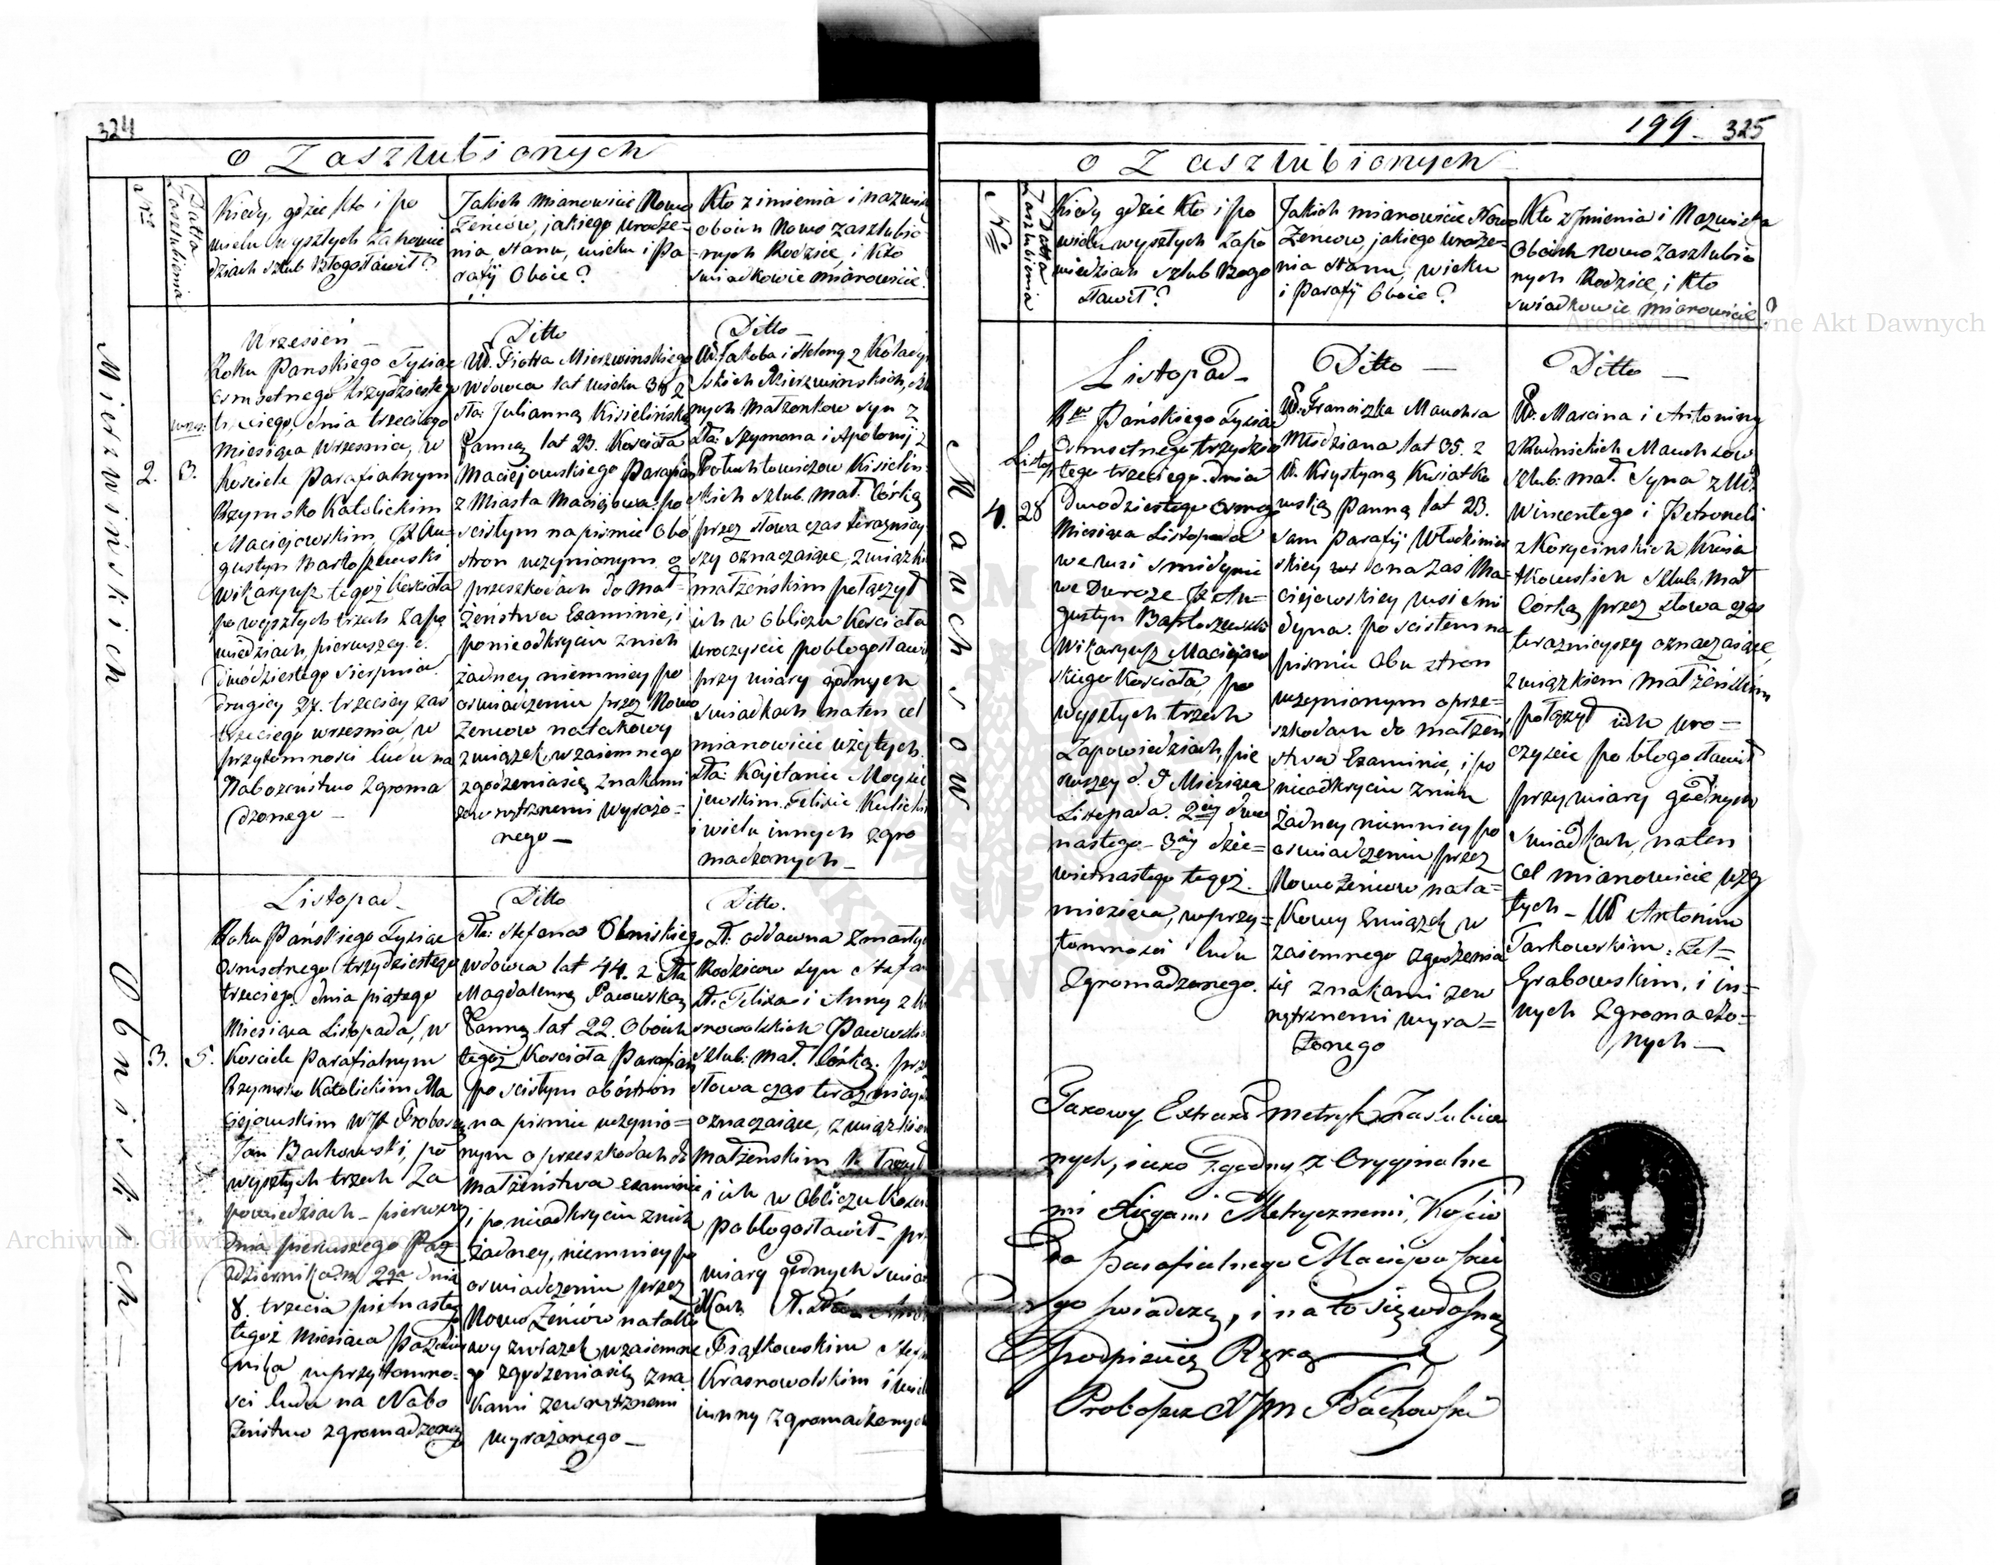 324
o Zaszlubionych
Nro
Datta Zaszlubienia
Kiedy, gdzie kto i po
wielu wyszłych Zapowie
dziach szlub błogosławił?
Jakich mianowicie Nowo
Żeńców, jakiego urodze-
nia stanu, wieku i Pa
rafij Oboie?
Kto z imienia i nazwis
obóch Nowo zaszlubio
-nych Rodzice, i Kto
swiadkowie mianowicie?
Mierzwinskich
wrzes:
2.
3.
Wrzesień
Roku Panskiego Tysiąc
osmsetnego trzydziesteg
trzeciego, dnia trzeciego
miesiąca Wrzesnia, w
Kosciele Parafialnym
Rzymsko Katolickim
Maciejowskim, JX Au=
gustyn Bartoszewski
Wikaryusz tegoż Koscioła
po wyszłych trzech Zapo
wiedziach, pierwszey d.
dwódziestego Sierpnia
drugiey 27. trzeciey zas
trzeciego wrzesnia, w
przytomnosci ludu na
Nabozeństwo Zgroma
dzonego
Ditto
W. Piotra Mierzwinskiego
Wdowca lat wieku 38 z
Sta: Julianną Kisielińską
Panną lat 23. Kosciola
Maciejowskiego Parafian
z Miasta Maciejowa. po
scisłym na pismie Obo
stron uczynionym o
przeszkodach do Mał=
żeństwa Examinie, i
ponieodkryciu z nich
żadney niemniey po
oswiadczeniu przez Nowo
Żencow na takowy
związek wzaiemnego
zgodzenia się Znakami
zewnętrznemi wyrażo-
nego
Ditto
W. Jakoba i Heleny z Kołady
skich Mierzwinskich, szlu
nych Matzonkow Syn z
Sta: Szymona i Apolonij z
Kisielin
skich szlub. mał. Córką
przez słowa czas teraznieу
szy oznaczaiące, związki
małżeńskim połączył
ich w Obliczu Kosciola
uroczyscie pobłogosławi
przy wiary godnych
swiadkach na ten cel
mianowicie użytych.
Sta: Kajetanie
jewskim. Felixie Kulicki
i wielu innych zgro
madzonych
Obniskich
3.
5.
Listopad
Roku Pańskiego Tysiąc
Osmsetnego trzydziestego
trzeciego. dnia piątego
Miesiąca Listopada, w
Kosciele Parafialnym
Rzymsko Katolickim Ma
ciejowskim WJX Probosz
Jan Bachowski, po
wyszłych trzech Za
powiedziach pierwszey
dnia pierwszego Paz=
dziernika 2ga dnia
8. trzecia pietnasteg
tegoż miesiaca Pazdzier
nika w przytomno-
sci ludu na Nabo
żeństwo zgromadzoneg
Ditto
Sta: Stefana Obniskieg
wdowca lat 44. z Sta
Magdalenną Paiowską
Panną lat 22. Obóich
tegoż Kosciola Parafian
po scisłym obóstron
na pismie uczynio=
nym o przeszkodach do
małżeństwa examinie
i po nieodkryciu z nich
żadney, niemniey po
oswiadczeniu przez
Nowo Żeńców na tak
owy związek wzaiemne
go zgodzenia się zna
kami zewnętrznemi
wyrażonego
Ditto.
oddawna zmarłych
Rodzicow syn Stefan
Felixa i Anny z K
snowolskich
szlub: mał. Córką. prz
słowa czas terazniey
oznaczaiące, związkie
małżenskim
i ich w Obliczu Kosci
pobłogosławił
wiary godnych swiad
kach
Piątkowskim
Krasnowolskim i wiel
innych zgromadzonych
199
325
o Zaszlubionych
Nro
Datta Zaszlubienia
Kiedy gdzie kto i po
wielu wyszłych Zapo
wiedziach szlub błogo
sławił?
Jakich mianowicie Nowo
Żencow jakiego urodze=
nia stanu, wieku
i Parafij Oboie?
Kto z Imienia i Nazwiska
Oboich nowo Zaszlubio
nych Rodzice, i Kto
swiadkowie mianowicie?
Mauchsow
Listop
4.
28
Listopad
Rku Pańskiego Tysiąc
Osmsetnego trzydzies
tego trzeciego. dnia
Dwodziestego osmego
Miesiąca Listopada
we wsi Smidynie
we Dworze JX Au=
gustyn Bartoszewski
Wikaryusz Maciejow
skiego Kosciola, po
wyszłych trzech
Zapowiedziach, pie
rwszey d. Miesiąca
Listopada. 2iey dwu
nastego 3iey dzie=
wietnastego tegoż
miesiąca, w przy=
tomnosci ludu
Zgromadzonego.
Ditto
W. Franciszka Mauchsa
Młodziana lat 35. z
W. Krystyną Kwiatko
wską Panną lat 23.
sam Parafij Włodzimir
skiey ona zas Ma=
ciejowskiey wsi Smi
dyna. po scisłem na
pismie Obu stron
uczynionym o prze=
szkodach do małżeń
stwa Examinie, i po
nieodkryciu z nich
Żadney niemniey po
oswiadczeniu przez
Nowo Żencow na ta=
kowy Związek w
zaiemnego zgodzenia
się znakami zew
nętrznemi wyra=
żonego
Ditto
W. Marcina i Antoniny
z Rudnickich Mauchsow
szlub: mał. Syna z W.
Wincentego i Petroneli
z Korycinskich Kwia
tkowskich szlub. mał
Corką przez słowa czas
teraznieyszy oznaczaiące,
związkiem małżeńskim
połączył ich uro=
czyscie pobłogosławił
przy wiary godnych
swiadkach, na ten
cel mianowicie uzy
tych W Antonim
Tarkowskim.
Grabowskim, i in=
nych Zgromadzo-
nych
Takowy Extrakt metryk Zaslubio
nych, iako Zgodny z Oryginalne
mi Xięgami Metrycznemi, Kościo
ła parafialnego Maciejowskie
go świadczę, i na to się własną
podpisuię Ręką
Proboszcz Bachowski
Archiwum Główne Akt Dawnych
Archiwum Główne Akt Dawnych